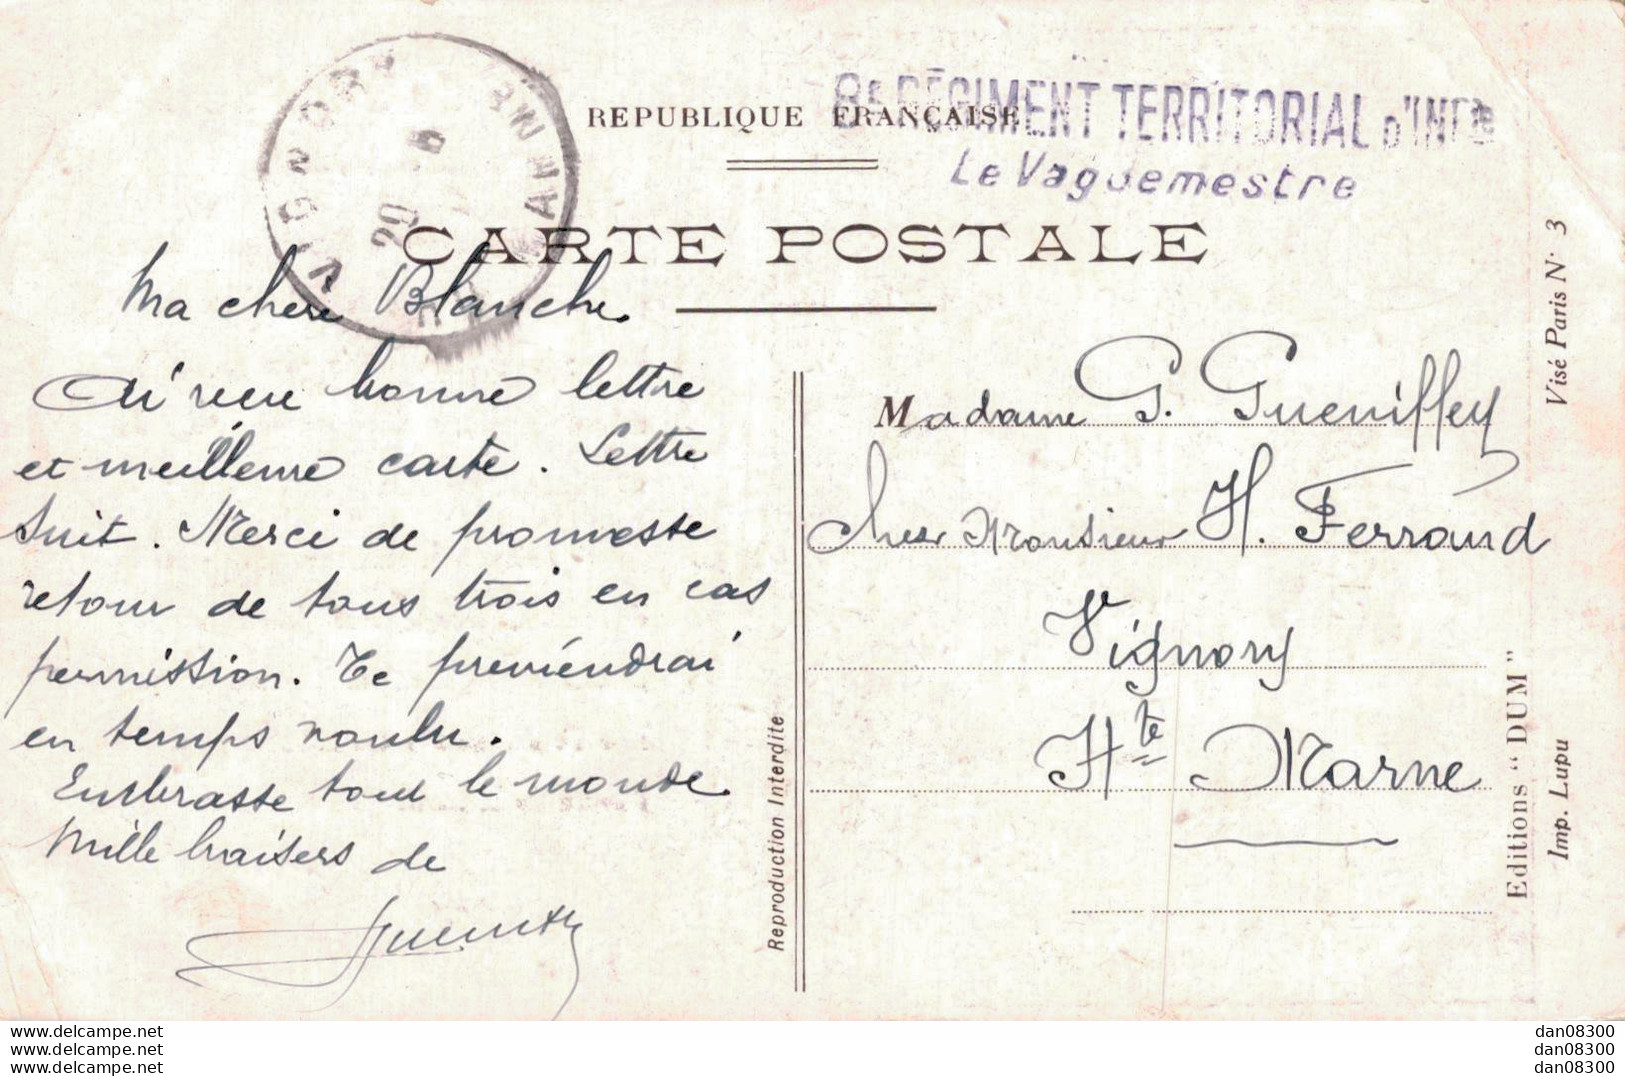 REPUBLIQUE FRANÇAISE
8e RÉGIMENT TERRITORIAL D'INFie
Le Vaguemestre
CARTE POSTALE
VIGNORY
HTE MARNE
Ma chère Blanche
Ai reçu bonne lettre
et meilleure carte. Lettre
suit. Merci de promesse
retour de tous trois en cas
permission. Te préviendrai
en temps voulu.
Embrasse tout le monde
Mille baisers de
Reproduction Interdite
Madame G. Gueniffey
Chez Monsieur H. Ferrand
Vignory
Hte Marne
Visé Paris N° 3
Editions "DUM"
Imp. Lupu
my-store.delcampe.net
my-store.delcampe.net
my-store.delcampe.net
dan08300
dan08300
dan08300